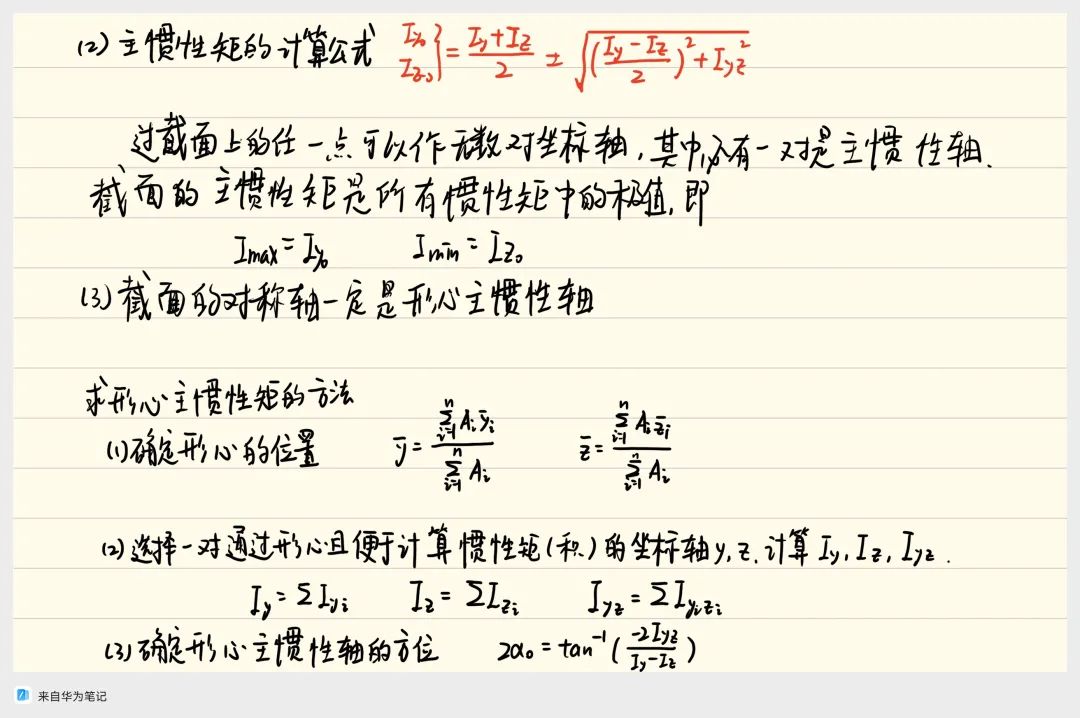 (2) 主惯性矩的计算公式 I_{y₀} I_{z₀} } = (I_y + I_z)/2 ± √(((I_y − I_z)/2)² + I_{yz}²)
过截面上的任一点可以作无数对坐标轴,其中必有一对是主惯性轴.
截面的主惯性矩是所有惯性矩中的极值,即
I_{max} = I_{y₀} I_{min} = I_{z₀}
(3) 截面的对称轴一定是形心主惯性轴
求形心主惯性矩的方法
(1) 确定形心的位置 ȳ = (∑_{i=1}^{n} A_i ȳ_i)/(∑_{i=1}^{n} A_i) z̄ = (∑_{i=1}^{n} A_i z̄_i)/(∑_{i=1}^{n} A_i)
(2) 选择一对通过形心且便于计算惯性矩(积)的坐标轴y,z,计算I_y, I_z, I_{yz}.
I_y = ∑I_{y_i} I_z = ∑I_{z_i} I_{yz} = ∑I_{y_i z_i}
(3) 确定形心主惯性轴的方位 2α₀ = tan⁻¹(−2I_{yz}/(I_y−I_z))
来自华为笔记